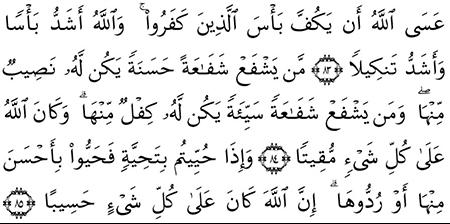 عَسَى ٱللَّهُ أَن يَكُفَّ بَأْسَ ٱلَّذِينَ كَفَرُوا۟ ۚ وَٱللَّهُ أَشَدُّ بَأْسًا
وَأَشَدُّ تَنكِيلًا ﴿٨٣﴾ مَّن يَشْفَعْ شَفَـٰعَةً حَسَنَةً يَكُن لَّهُۥ نَصِيبٌ
مِّنْهَا ۖ وَمَن يَشْفَعْ شَفَـٰعَةً سَيِّئَةً يَكُن لَّهُۥ كِفْلٌ مِّنْهَا ۗ وَكَانَ ٱللَّهُ
عَلَىٰ كُلِّ شَىْءٍ مُّقِيتًا ﴿٨٤﴾ وَإِذَا حُيِّيتُم بِتَحِيَّةٍ فَحَيُّوا۟ بِأَحْسَنَ
مِنْهَا أَوْ رُدُّوهَآ ۗ إِنَّ ٱللَّهَ كَانَ عَلَىٰ كُلِّ شَىْءٍ حَسِيبًا ﴿٨٥﴾